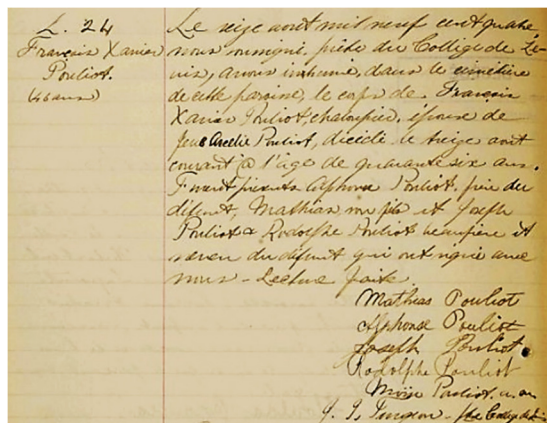 S. 24
François Xavier
Pouliot.
(46 ans)
Le seize aout mil neuf cent quatre
nous soussigné, prêtre du Collège de Lé-
vis, avons inhumé, dans le cimetière
de cette paroisse, le corps de François
Xavier Pouliot, chaloupier, époux de
feue Aurélie Pouliot, décédé le treize aout
courant @ l'age de quarante six ans.
Furent présents Alphonse Pouliot, frère du
défunt, Mathias, son fils et Joseph
Pouliot & Rodolphe Pouliot beaufrère et
neveu du défunt qui ont signé avec
nous - Lecture faite.
Mathias Pouliot
Alphonse Pouliot
Joseph Pouliot
Rodolphe Pouliot
Pouliot
J.